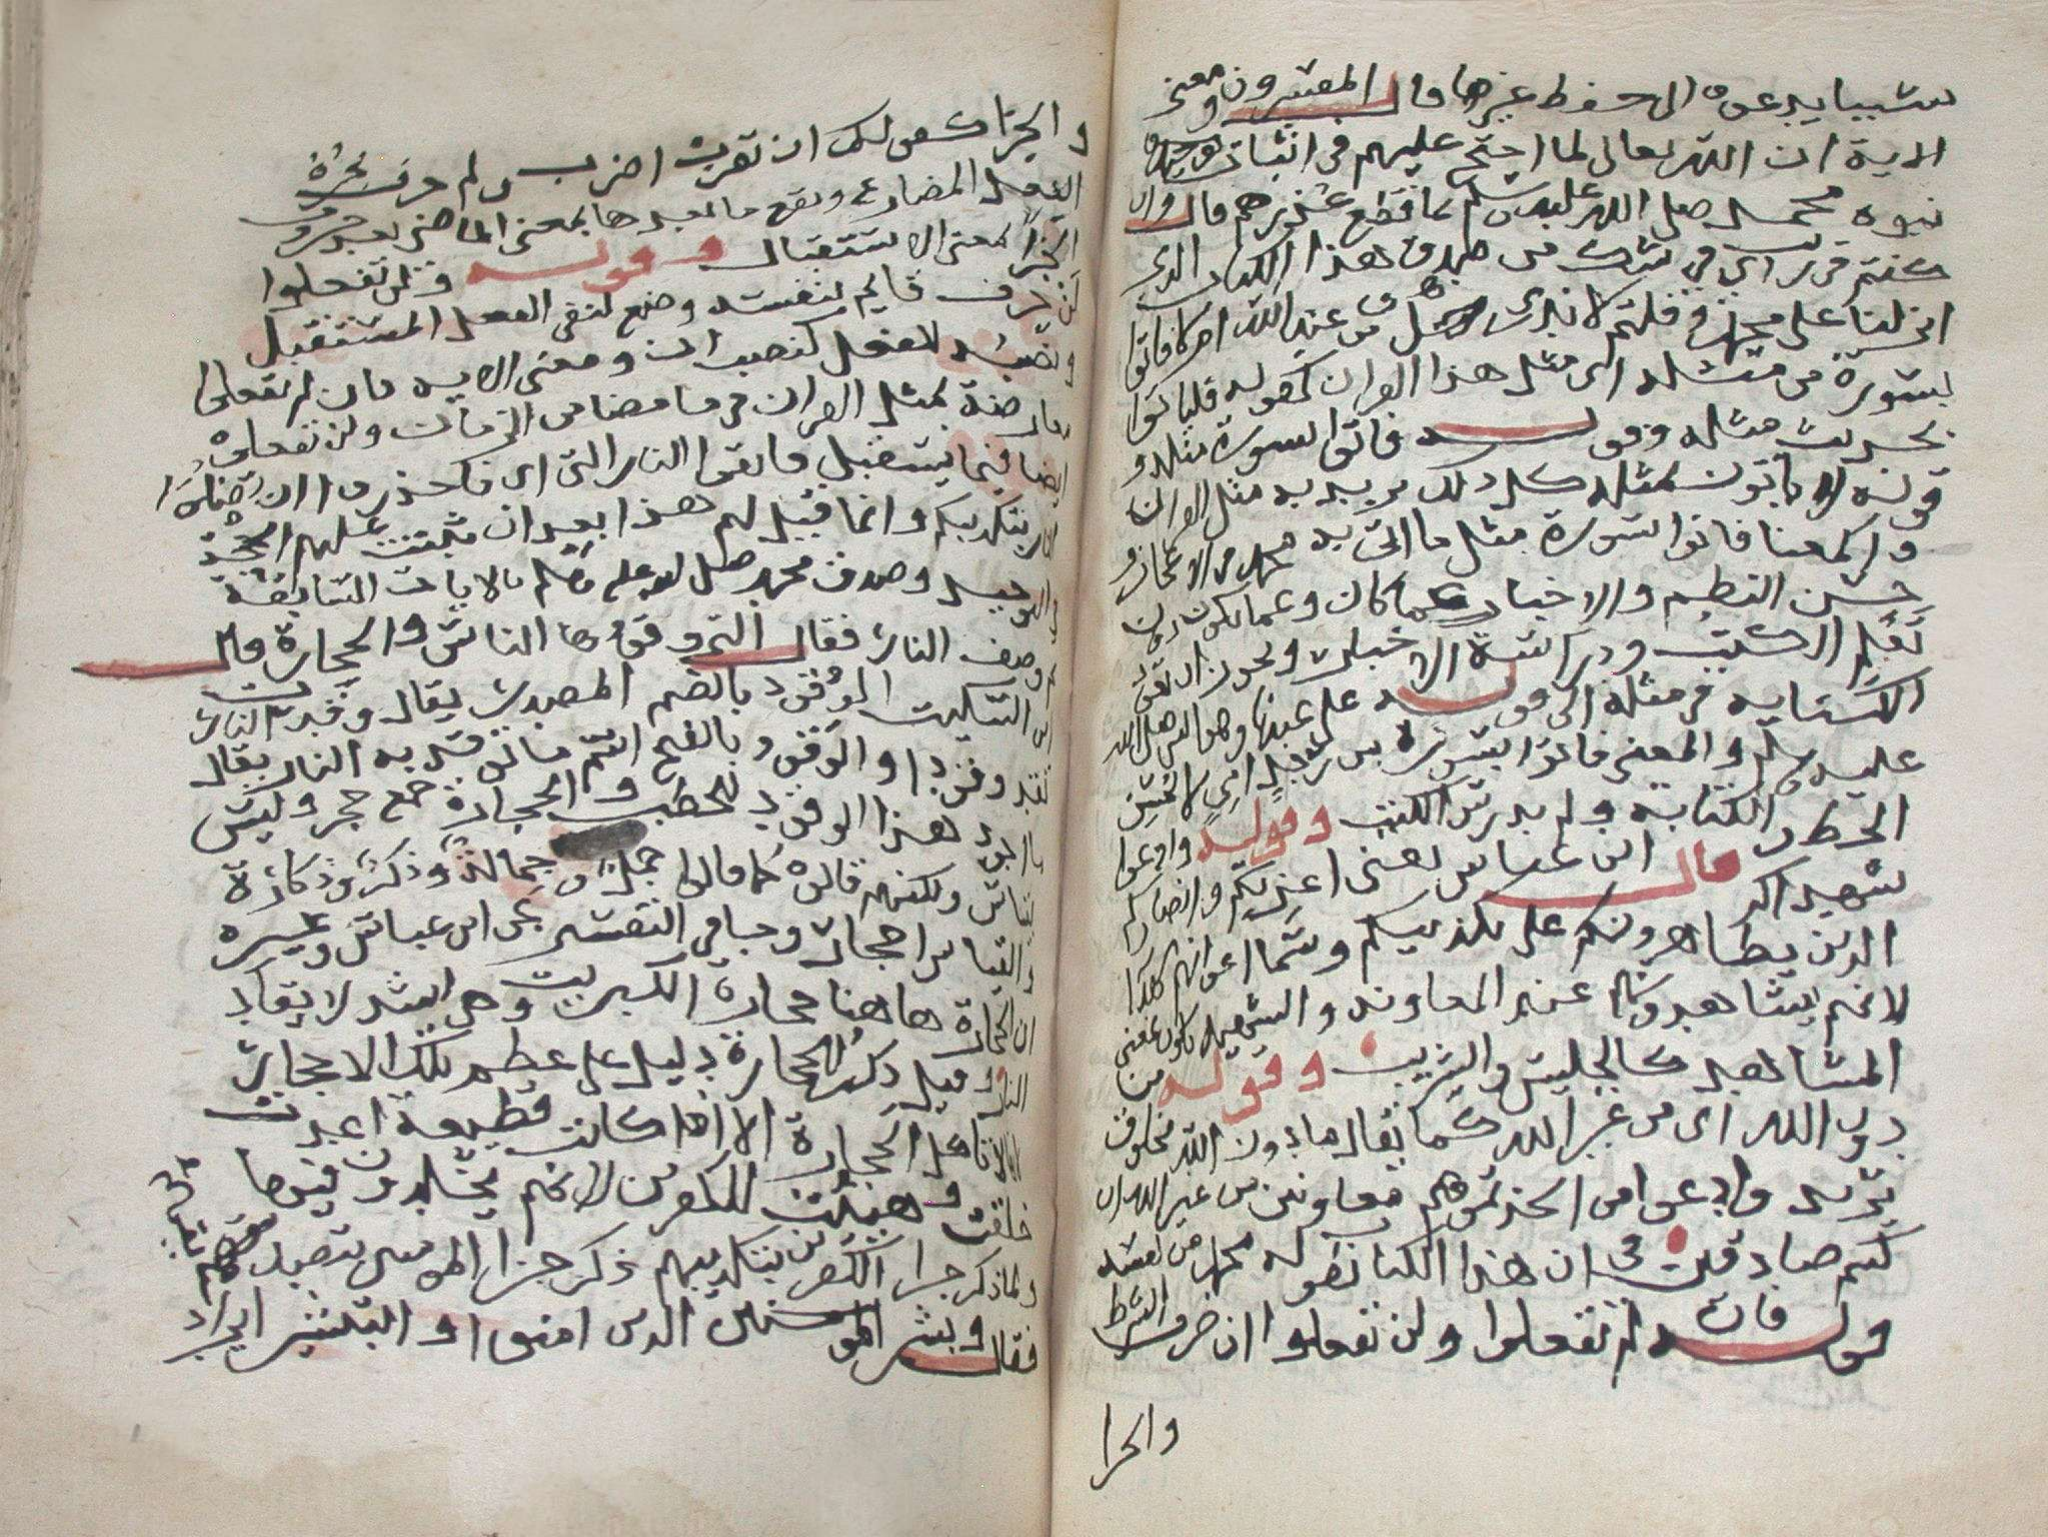 سببا يدعوه الى حفظ غيرها قال المفسرون ومعنى
الاية ان الله تعالى لما احتج عليهم في اثبات توحيده
نبوه محمد صلى الله عليه وسلم بما قطع عذرهم قال وان
كنتم في ريب اي في شك من صدق هذا الكتاب الذي
انزلنا على محمد وقلتم لا ندري هل هو من عند الله ام لا فاتوا
بسورة من مثله اي مثل هذا القران كقوله فلياتوا
بحديث مثله وقوله فاتوا بسورة مثله و
قوله لا ياتون بمثله كل ذلك يريد به مثل القران
والمعنا فاتوا بسورة مثل ما اتى به محمد من الاعجاز و
حسن النظم والاخبار عما كان وعما يكون دون
تعلم الكتب ودراسة الاخبار ويجوز ان تكون
الكناية في مثله الى قوله على عبدنا وهو النبي صلى الله
عليه وسلم والمعنى فاتوا بسورة من رجل امي لا يحسن
الخط و الكتابة ولم يدرس الكتب وقوله وادعوا
شهداكم قال ابن عباس يعني اعوانكم وانصاركم
الذين يظاهرونكم على تكذيبكم وسما اعوانهم شهدا
لانهم يشاهدونهم عند المعاونه والشهيد يكون بمعنى
المشاهد كالجليس والشريب وقوله من
دون الله اي من غير الله كما يقال ما دون الله مخلوق
يريد وادعوا من اتخذتموهم معاونين من غير الله ان
كنتم صادقين في ان هذا الكتاب تقوله محمد من نفسه
قوله فان لم تفعلوا ولن تفعلوا ان حرف الشرط
والجزا
والجزا كقولك ان تضرب اضرب ولم حرف يجزم
الفعل المضارع ويقع ما بعدها بمعنى الماضي بعد حروف
الجزا بمعنى الاستقبال وقوله ولن تفعلوا
لن حرف قايم بنفسه وضع لنفي الفعل المستقبل
ونصبه للفعل كنصب ان ومعنى الايه فان لم تفعلوا
معارضة بمثل القران فيما مضا من الزمان ولن تفعلوه
ايضا فيما يستقبل فاتقوا النار التي اي فاحذروا ان تصلوا
النار بتكذيبكم وانما قيل لهم هذا بعد ان ثبتت عليهم الحجة
في التوحيد وصدق محمد صلى الله عليه وسلم بالايات السابقة
ثم وصف النار فقال التي وقودها الناس والحجارة قال
ابن السكيت الوقود بالضم المصدر يقال وقدت النار
تقد وقودا والوقود بالفتح اسم ما توقد به النار يقال
ما اجود هذا الوقود للحطب والحجارة جمع حجر وليس
بقياس ولكنهم قالوه كما قالوا جمل وجمالة وذكر وذكارة
والقياس احجار وجا في التفسير عن ابن عباس وغيره
ان الحجارة هاهنا حجارة الكبريت وهي اشد لايقاد
النار وقيل ذكر الحجارة دليل على عظم تلك الاحجار
لانها لا تاكل الحجارة الا اذا كانت فظيعة اعدت
خلقت وهيئت للكفرين لانهم يخلدون فيها
ولما ذكر جزا الكفرين بتكذيبهم ذكر جزا المومنين بتصديقهم
فقال وبشر المومنين الذين امنوا والتبشير ايراد